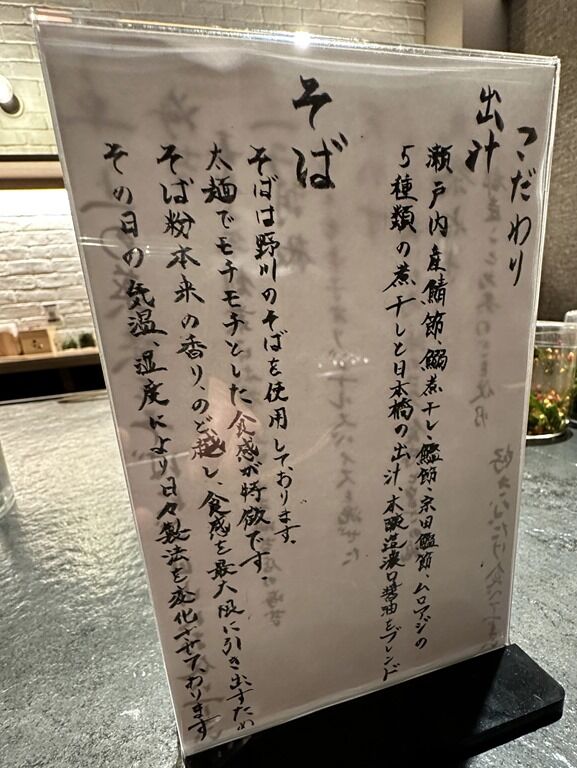 こだわり
出汁
瀬戸内産鯖節、鰯煮干し、鰹節、宗田鰹節、ムロアジの
5種類の煮干しと日本橋の出汁、本醸造濃口醤油をブレンド
そば
そばは野川のそばを使用しております。
太麺でモチモチとした食感が特徴です。
そば粉本来の香り、のど越し、食感を最大限に引き出すため
その日の気温、湿度により日々製法を変化させております